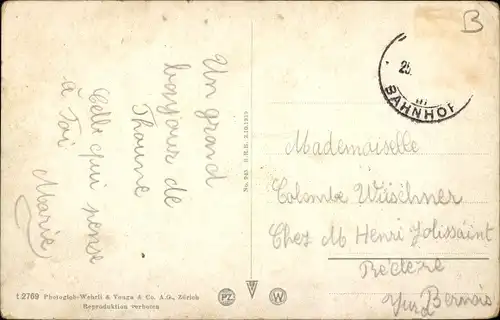 B
Un grand
bonjour de
Thoune
Celle qui pense
à Toi
Marie
25.
III
BAHNHOF
No. 243 B.R.B. 3.10.1919
Mademoiselle
Colombe Wüschner
Chez M Henri Jolissaint
Réclère
Jura Bernois
t.2769 Photoglob-Wehrli & Vouga & Co. A.G., Zürich
Reproduktion verboten
PZ
W